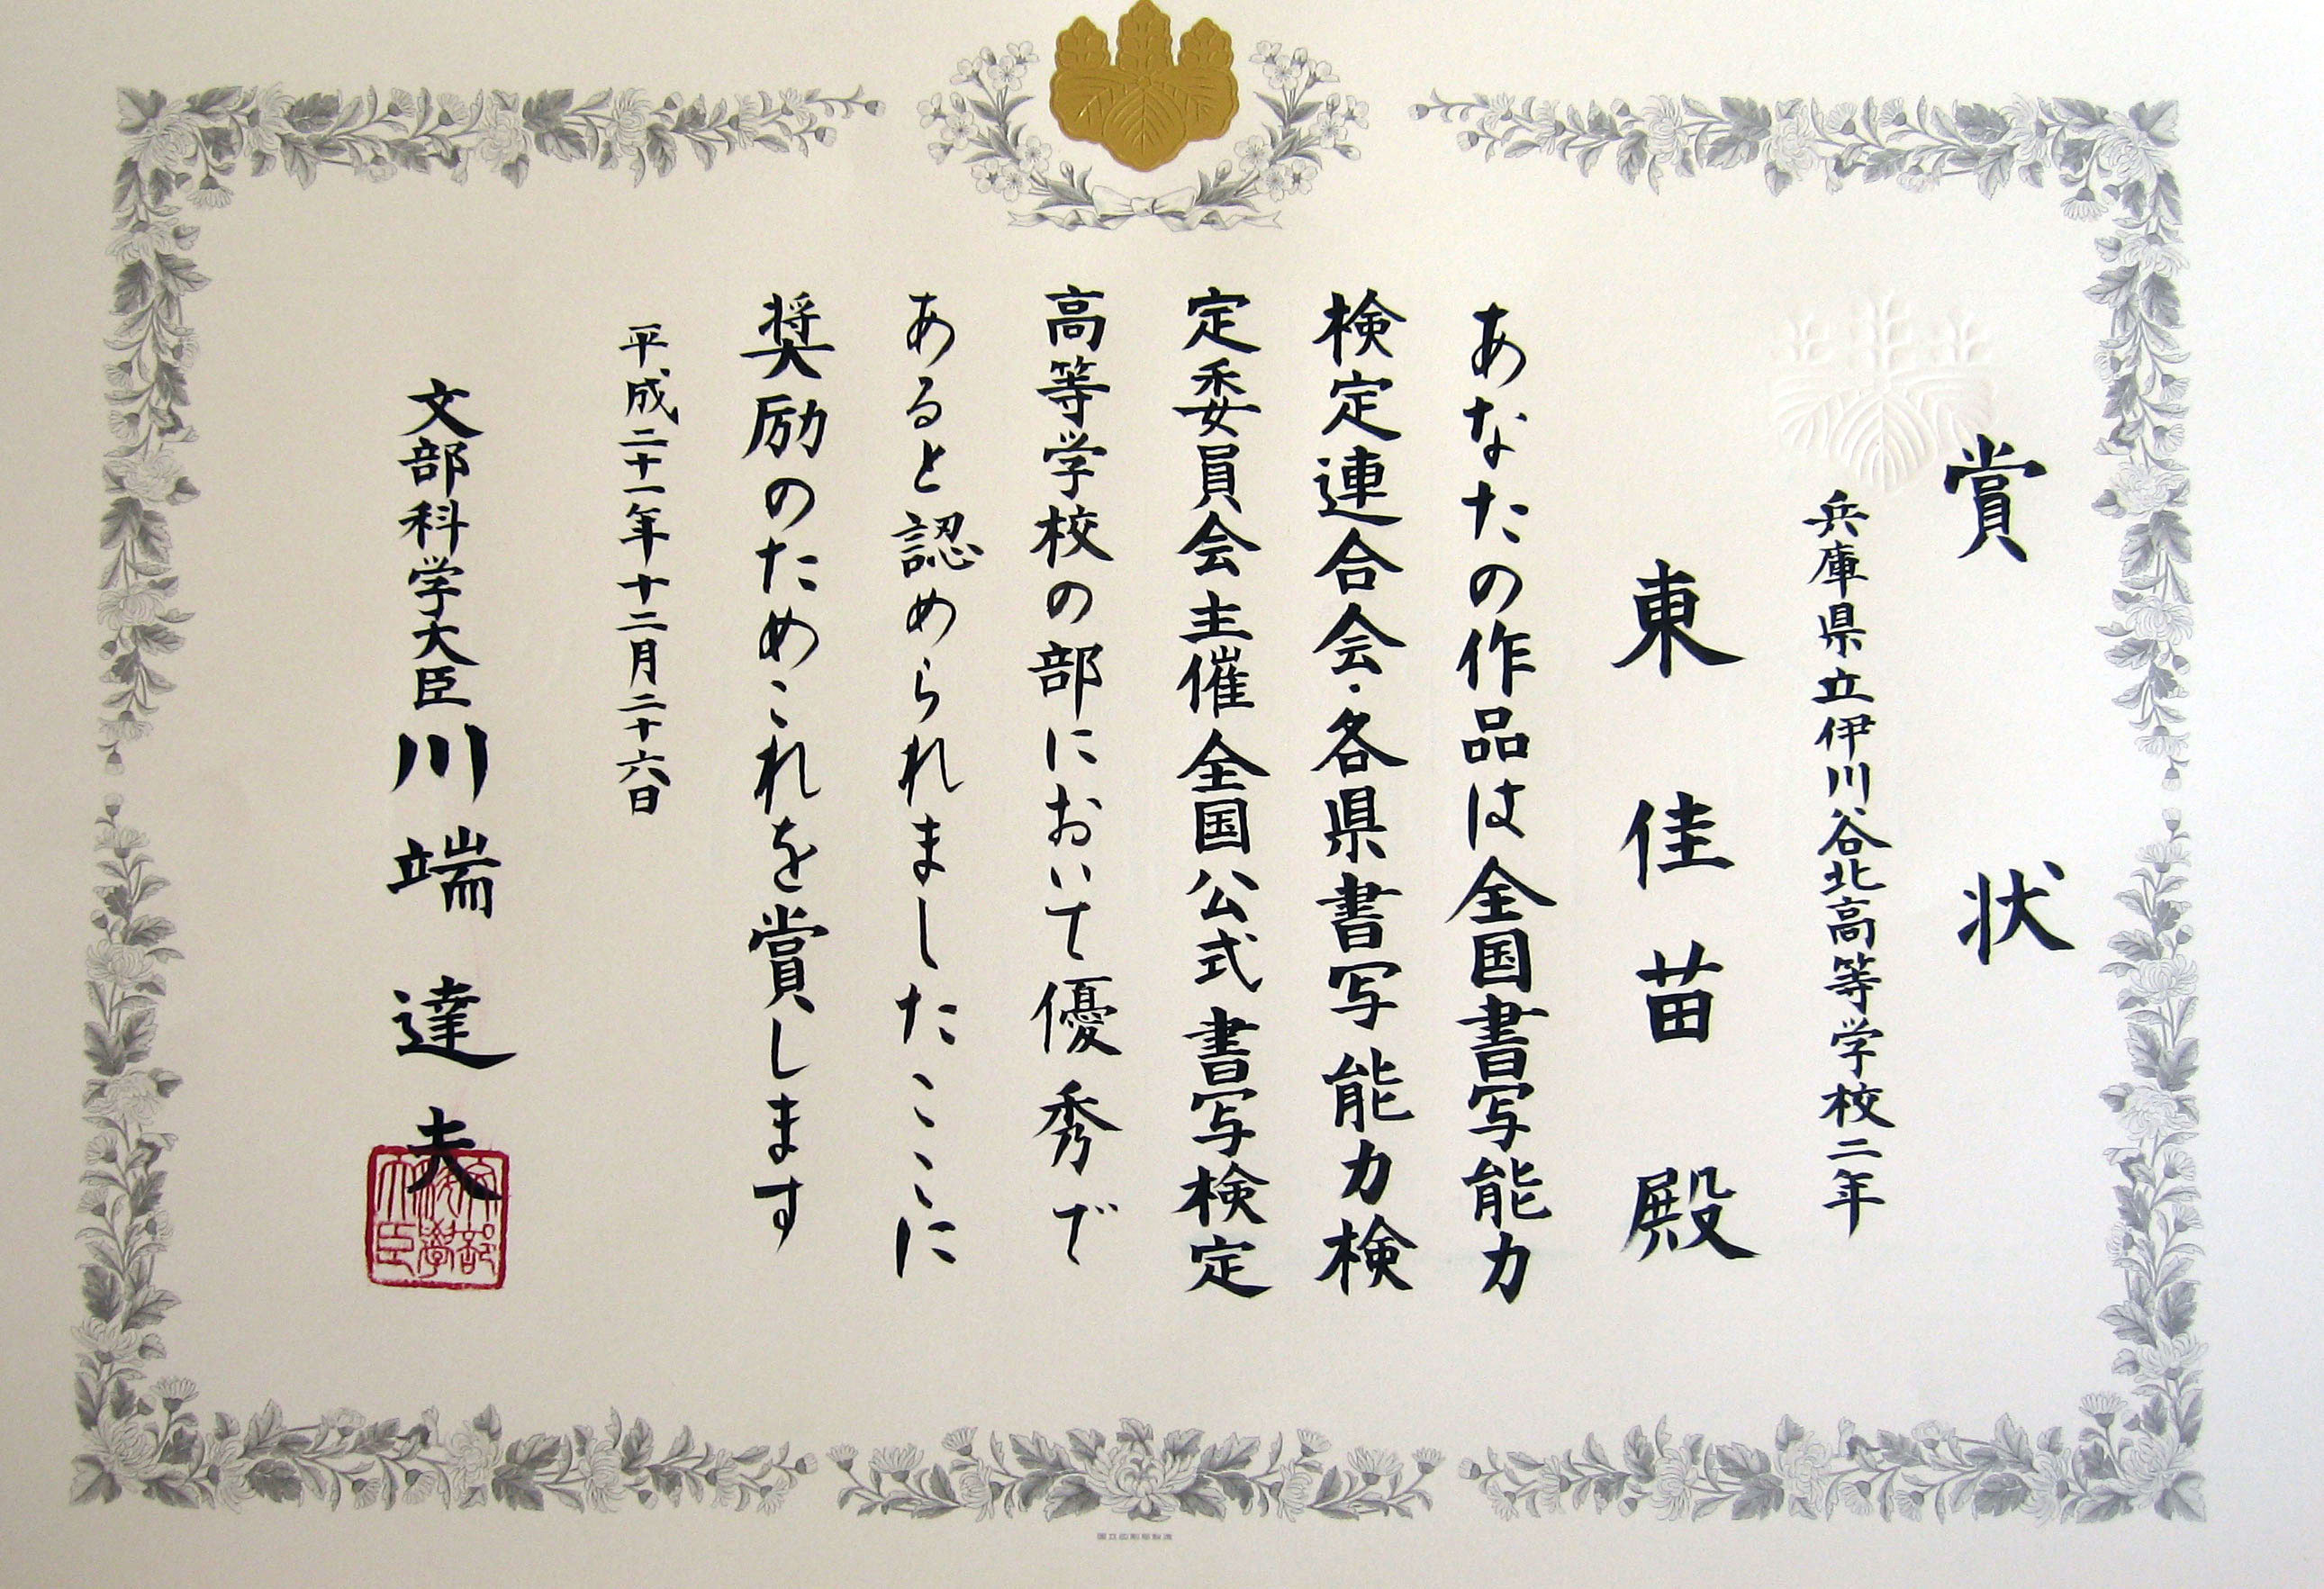 賞状
兵庫県立伊川谷北高等学校二年
東佳苗殿
あなたの作品は全国書写能力
検定連合会・各県書写能力検
定委員会主催全国公式書写検定
高等学校の部において優秀で
あると認められましたここに
奨励のためこれを賞します
平成二十一年十二月二十六日
文部科学大臣川端達夫